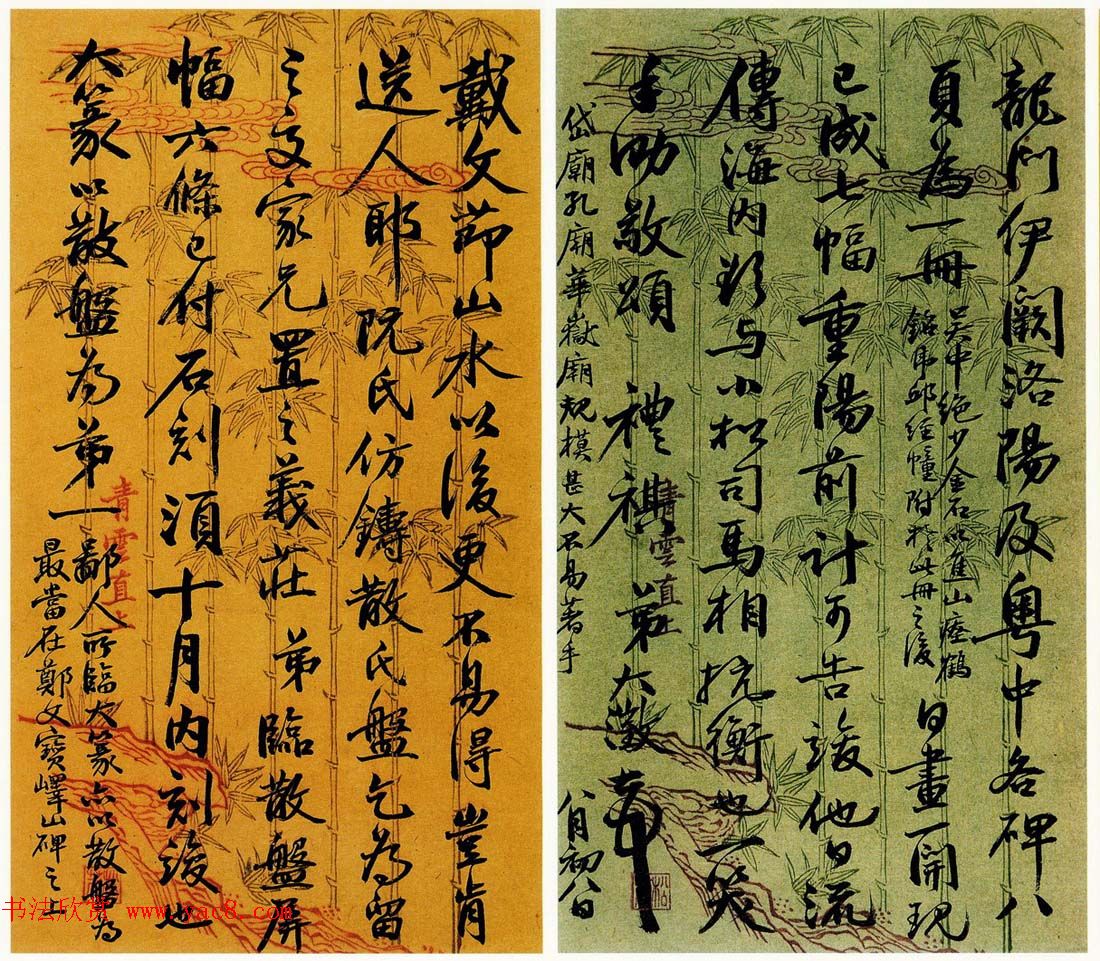 龍門伊闕洛陽及粵中各碑八
頁為一冊
吳中絕少金石以焦山瘞鶴
銘虎邱經幢附於此冊之後
日畫一開現
已成七幅重陽前計可告竣他日流
傳海內頗與小松司馬相抗衡也一笑
手泐敬頌 禮祺 弟大澂頓首
八月初八日
岱廟孔廟華嶽廟規模甚大不易著手
青雲直上
戴文節山水以後更不易得豈肯
送人耶阮氏仿鑄散氏盤乞為留
之交家兄置之義莊弟臨散盤屏
幅六條已付石刻須十月內刻竣也
大篆以散盤為弟一
鄙人所臨大篆亦以散盤為
最當在鄭文寶嶧山碑之上
青雲直上
书法欣赏 www.yac8.com